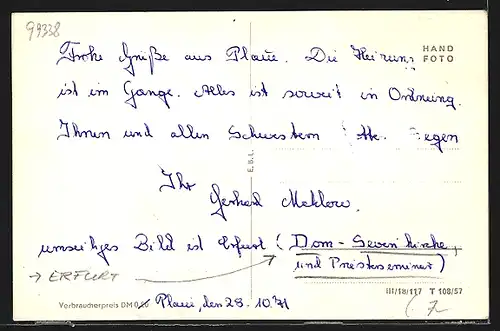 99338
HAND
FOTO
Frohe Grüße aus Plaue. Die Heizung
ist im Gange. Alles ist soweit in Ordnung.
Ihnen und allen Schwestern Segen
Ihr
Gerhard
umseitiges Bild ist Erfurt (Dom - Severikirche,
und Priesterseminar)
→ ERFURT
III/18/117 T 108/57
Verbraucherpreis DM 0,20
Plaue, den 28. 10. 71